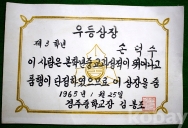 우등상장
제 3 학년
손덕수
이 사람은 본학년중 교과성적이 뛰어나고
품행이 단정하였으므로 이 상장을 줌
1965년 1월 25일
경주중학교장 김
kobay